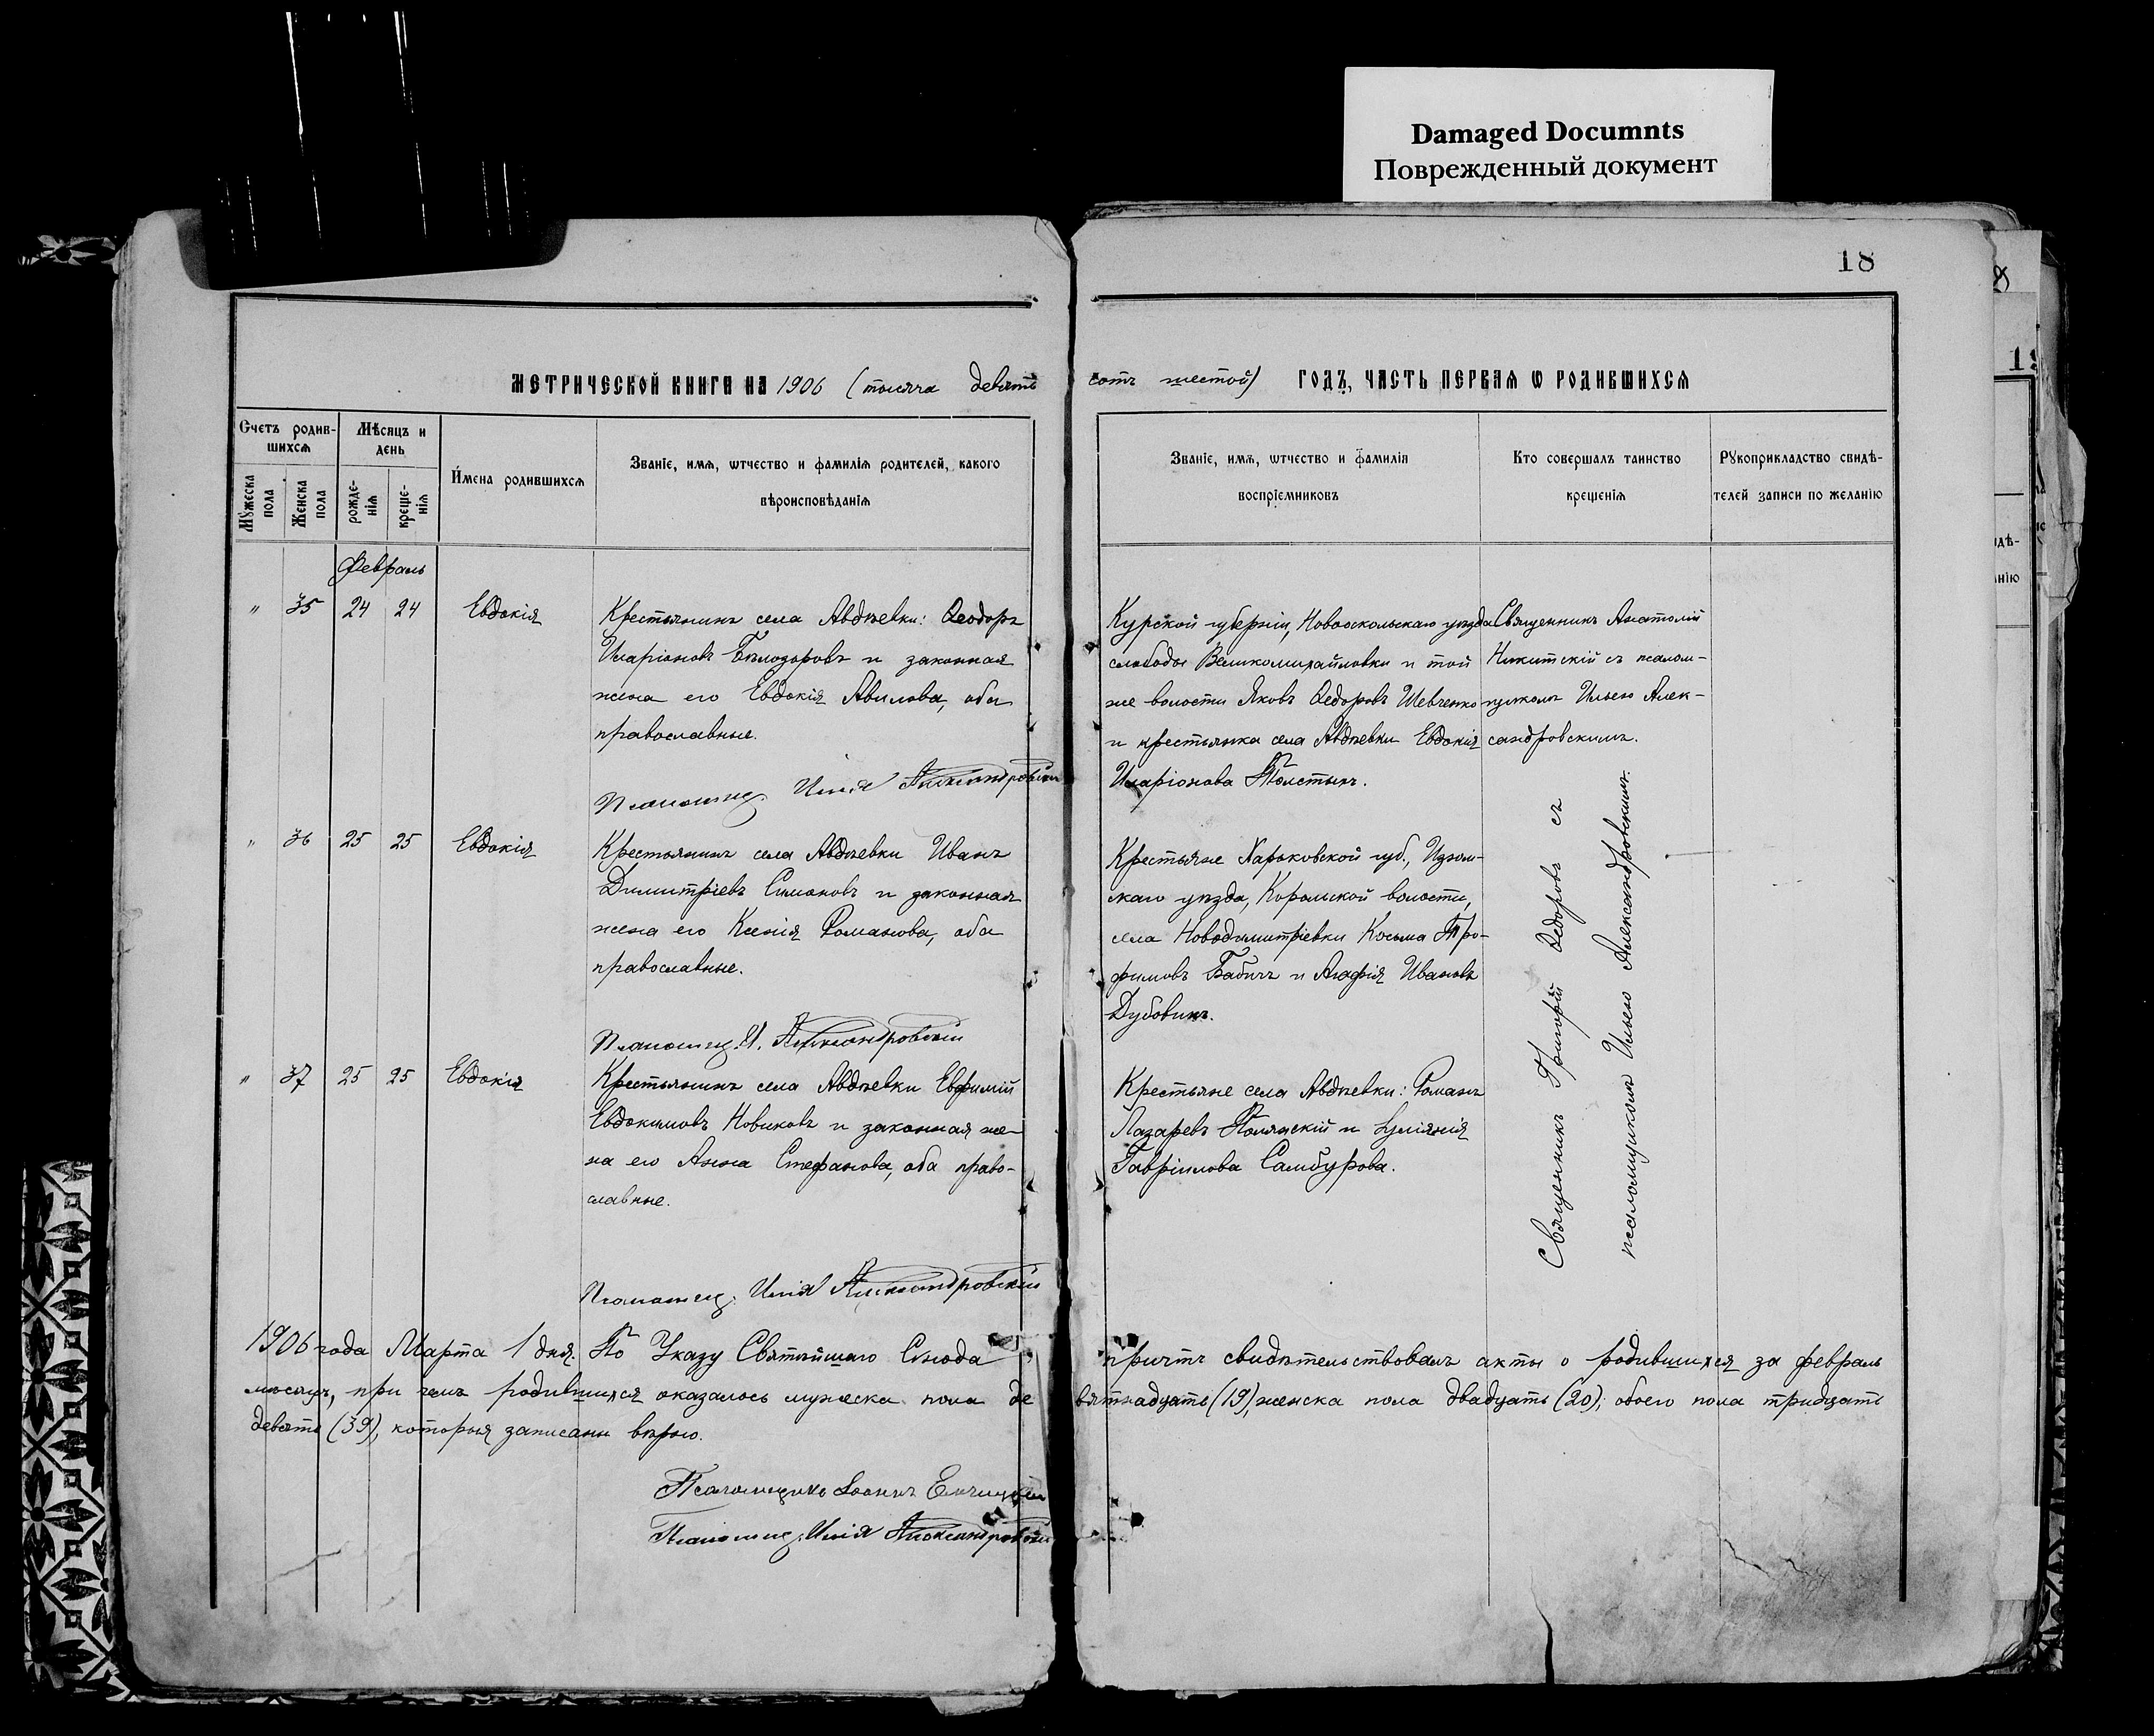 Damaged Documnts
Поврежденный документ
18
МЕТРИЧЕСКОЙ КНИГИ НА 1906 (тысяча девять
сотъ шестой) ГОДЪ, ЧАСТЬ ПЕРВАЯ Ѡ РОДИВШИХСЯ
Счетъ родив-
шихся
Мѣсяцъ и
день
Мужеска
пола
Женска
пола
рожде-
нія
креще-
нія
Имена родившихся
Званіе, имя, ѡтчество и фамилія родителей, какого
вѣроисповѣданія
Званіе, имя, ѡтчество и фамилія
воспріемниковъ
Кто совершалъ таинство
крещенія
Рукоприкладство свидѣ-
телей записи по желанію
Февраль
" 35 24 24 Евдокія
Крестьянинъ села Авдѣевки: Ѳеодоръ
Иларіоновъ Бѣлозоровъ и законная
жена его Евдокія Авилова, оба
православные.
Псаломщ. Илія Александровскій
Курской губерніи, Новооскольскаго уѣзда
слободы Великомихайловки и той
же волости Яковъ Ѳедоровъ Шевченко
и крестьянка села Авдѣевки Евдокія
Иларіонова Толстыхъ.
Священникъ Анатолій
Никитскій съ псалом-
щикомъ Ильею Алек-
сандровскимъ.
" 36 25 25 Евдокія
Крестьянинъ села Авдѣевки Иванъ
Димитріевъ Симоновъ и законная
жена его Ксенія Романова, оба
православные.
Псаломщ. И. Александровскій
Крестьяне Харьковской губ., Изюм-
скаго уѣзда, волости,
села Новодимитріевки Косьма Тро-
фимовъ Бабичъ и Агафія Иванова
Дубовикъ.
" 37 25 25 Евдокія
Крестьянинъ села Авдѣевки Евфимій
Евдокимовъ Новиковъ и законная же-
на его Анна Стефанова, оба право-
славные.
Псаломщ. Илія Александровскій
Крестьяне села Авдѣевки: Романъ
Лазаревъ Полянскій и Іуліанія
Гавріилова Самбурова.
Священникъ Григорій Ѳедоровъ съ
псаломщикомъ Ильею Александровскимъ.
1906 года Марта 1 дня. По Указу Святѣйшаго Синода причтъ свидѣтельствовалъ акты о родившихся за февраль
мѣсяцъ, при чемъ родившихся оказалось мужеска пола де вятнадцать (19), женска пола двадцать (20); обоего пола тридцать
девять (39), которыя записаны вѣрно.
Псаломщикъ Іоаннъ
Псаломщ. Илія Александровскій